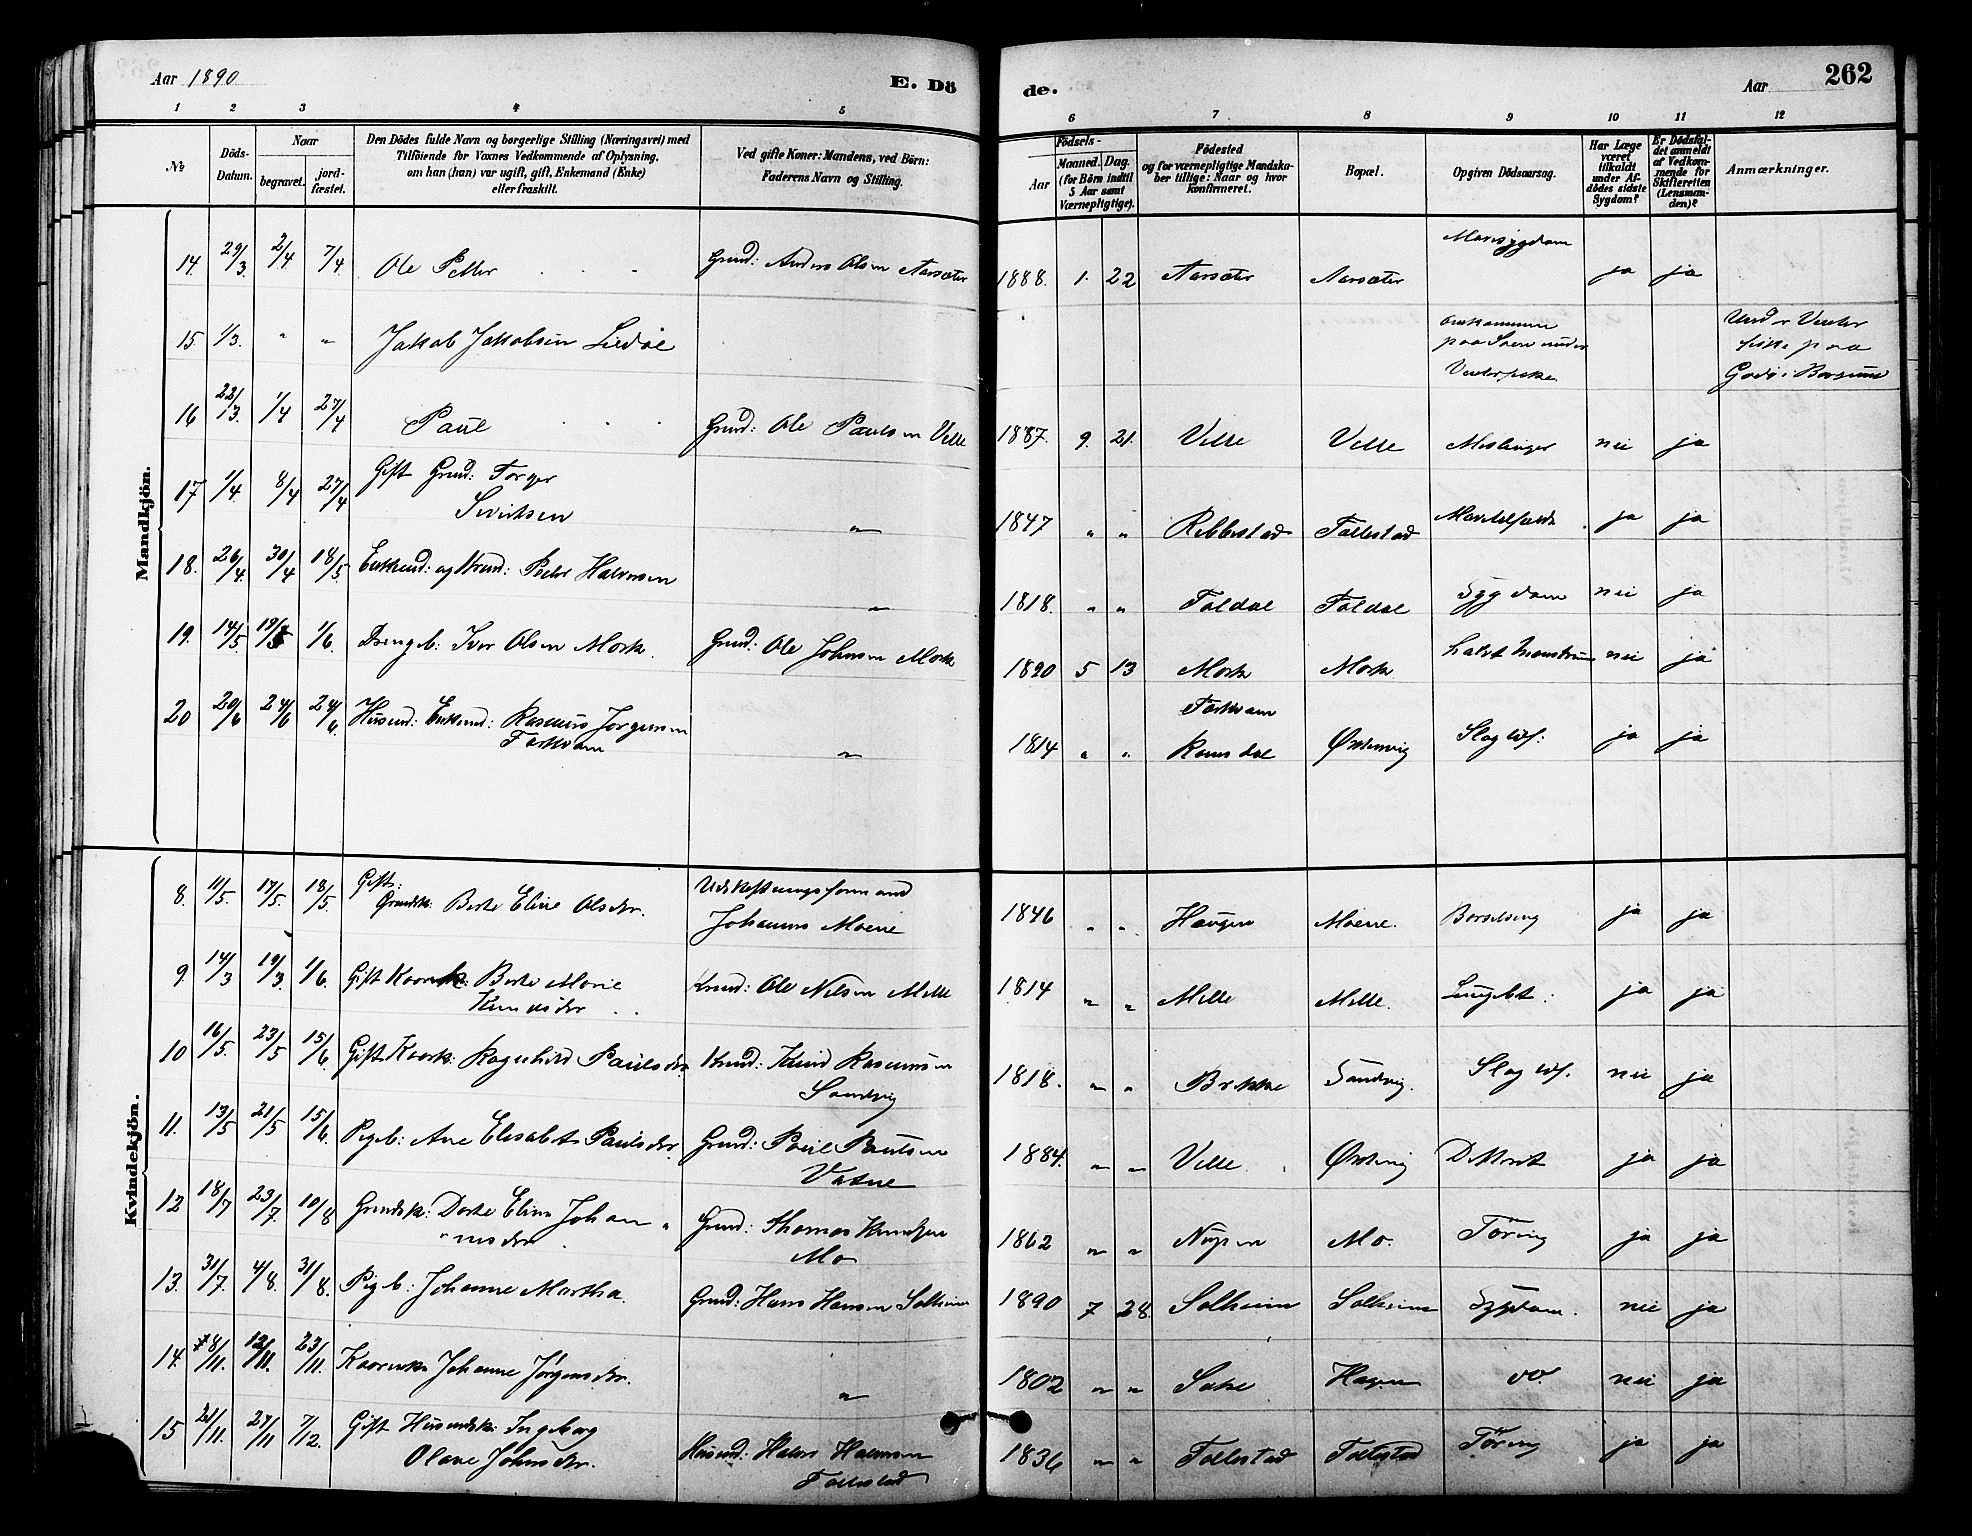 Aar 1890
E. Dö
de.
Aar
262
1 2 3 4 5 6 7 8 9 10 11 12
№
Döds-
Datum.
Naar
begravet.
jord-
fæstet.
Den Dödes fulde Navn og borgerlige Stilling (Næringsvei) med
Tilföiende for Voxnes Vedkommende af Oplysning,
om han (han) var ugift, gift, Enkemand (Enke)
eller fraskilt.
Ved gifte Koner: Mandens, ved Börn:
Faderens Navn og Stilling.
Födsels-
Aar
Maaned. Dag.
(for Börn indtil
5 Aar samt
Værnepligtige).
Födested
og for værnepligtige Mandska-
ber tillige: Naar og hvor
konfirmeret.
Bopæl.
Opgiven Dödsaarsag.
Har Læge
været
tilkaldt
under Af-
dödes sidste
Sygdom?
Er Dödsfal-
det anmeldt
af Vedkom-
mende for
Skifteretten
(Lensman-
den)?
Anmærkninger.
Mandkjön.
14 29/3 2/4 7/4 Ole Petter Grund: Anders Olsen Aarsæter 1888. 1. 22 Aarsæter Aarsæter Mavesygdom ja ja
15. 1/3. " " Jakob Jakobsen Lidöe
omkommen
paa Söen under
Vinterfiske
Under Vinter
fiske paa
Godö i Borgund
16 22/3 1/4 27/4 Paul Grund: Ole Paulsen Velle 1887. 9. 21. Velle Velle Meslinger nei ja
17 1/4. 8/4 27/4 Gift Grund: Torger
Sivertsen " 1847 " " Ribbestad Follestad ja ja
18. 26/4 30/4 18/5 Enkemd: og Peder Halvorsen " 1818. " " Foldal Foldal Sygdom nei ja
19. 14/5 19/5 1/6. Drengeb: Iver Olsen Mork. Grund: Ole Johnsen Mork 1890 5 13 Mork Mork nei ja
20 20/6 24/6 24/6. Husmd: Enkemd: Rasmus Jörgensen
" 1814 " " Romsdal Østenvig Slagtilf: ja ja
Kvindekjön.
8. 11/5. 17/5. 18/5 Gift:
Grundk: Berte Eline Olsdtr. Udskiftningsformand
Johannes Moene 1846 " " Haugen Moene. Barselseng ja ja
9. 14/3 19/3 1/6. Gift Kaark: Berte Marie
Knudsdtr Ole Nilsen Melle 1814 " " Melle Melle. Lungebet: ja ja
10 16/5. 23/5 15/6 Gift Kaark: Ragnhild Paulsdtr Knud Rasmussen
Sandvig 1818. " " Brekke Sandvig. Slagtilf. nei ja
11. 13/5 21/5 15/6. Pigeb: Ane Elisabet Paulsdtr. Grund: Paul Paulsen
Vatne 1884. " " Velle. Østenvig ja ja
12 18/7 23/7. 10/8 Grundk: Dorte Eline Johan-
nesdtr Grund: Thomas Knudsen
Mo 1862 " " Nupen Mo. Töring ja ja
13. 31/7. 4/8. 31/8. Pigeb: Johanne Martha. Grund: Hans Hansen Solheim 1890 7 28. Solheim Solheim Sygdom. nei ja
14. 8/11. 12/11. 23/11. Johanne Jörgensdtr. " 1802 " " Hagen do. nei ja
15 21/11. 27/11 7/12. Gift Husmdk: Ingeborg
Olave Johnsdtr. Husmd: Halvorsen
Follestad 1836 " " Follestad Follestad Töring ja ja